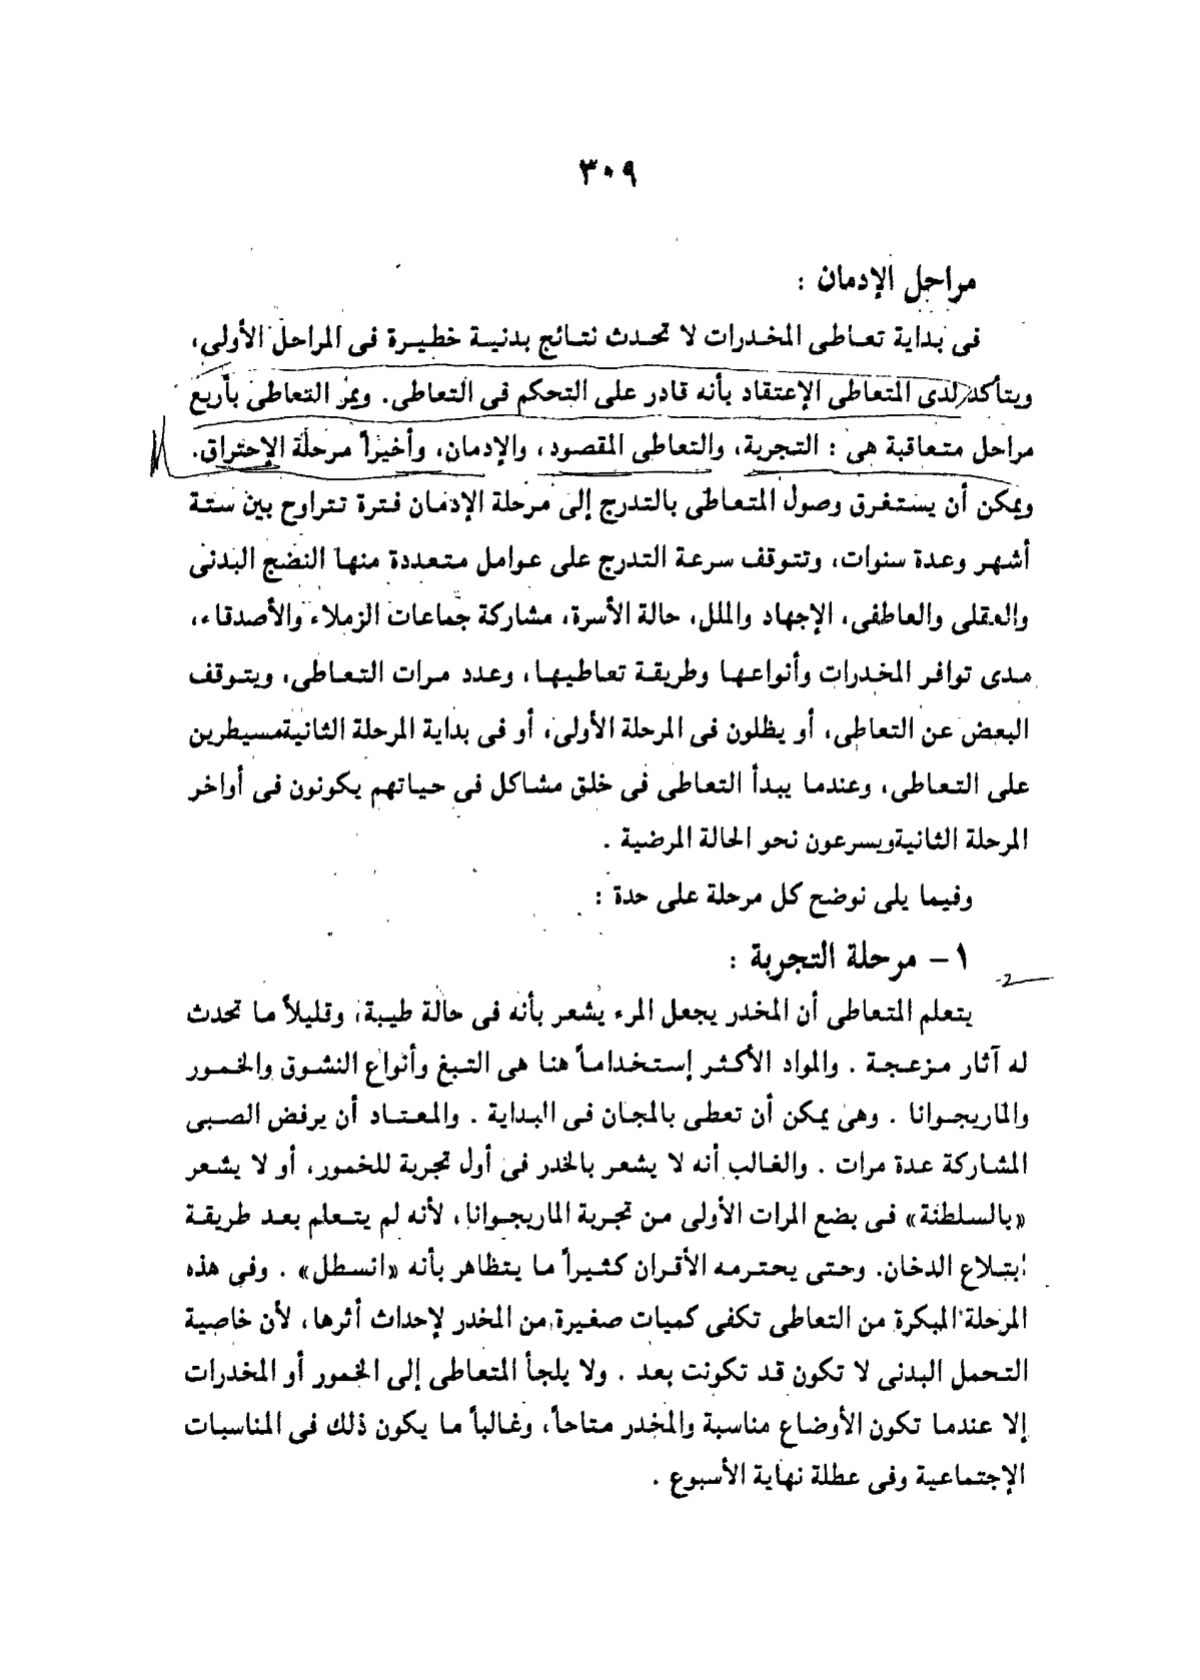 ٣٠٩
مراحل الإدمان :
فى بداية تعاطى المخدرات لا تحدث نتائج بدنية خطيرة فى المراحل الأولى،
ويتأكد لدى المتعاطى الإعتقاد بأنه قادر على التحكم فى التعاطى. ويمر التعاطى بأربع
مراحل متعاقبة هى : التجربة، والتعاطى المقصود، والإدمان، وأخيراً مرحلة الإحتراق.
ويمكن أن يستغرق وصول المتعاطى بالتدرج إلى مرحلة الإدمان فترة تتراوح بين ستة
أشهر وعدة سنوات، وتتوقف سرعة التدرج على عوامل متعددة منها النضج البدنى
والعقلى والعاطفى، الإجهاد والملل، حالة الأسرة، مشاركة جماعات الزملاء والأصدقاء،
مدى توافر المخدرات وأنواعها وطريقة تعاطيها، وعدد مرات التعاطى، ويتوقف
البعض عن التعاطى، أو يظلون فى المرحلة الأولى، أو فى بداية المرحلة الثانية مسيطرين
على التعاطى، وعندما يبدأ التعاطى فى خلق مشاكل فى حياتهم يكونون فى أواخر
المرحلة الثانية ويسرعون نحو الحالة المرضية .
وفيما يلى نوضح كل مرحلة على حدة :
١- مرحلة التجربة :
يتعلم المتعاطى أن المخدر يجعل المرء يشعر بأنه فى حالة طيبة، وقليلاً ما تحدث
له آثار مزعجة . والمواد الأكثر إستخداماً هنا هى التبغ وأنواع النشوق والخمور
والماريجوانا . وهى يمكن أن تعطى بالمجان فى البداية . والمعتاد أن يرفض الصبى
المشاركة عدة مرات . والغالب أنه لا يشعر بالخدر فى أول تجربة للخمور، أو لا يشعر
«بالسلطنة» فى بضع المرات الأولى من تجربة الماريجوانا، لأنه لم يتعلم بعد طريقة
إبتلاع الدخان. وحتى يحترمه الأقران كثيراً ما يتظاهر بأنه «انسطل» . وفى هذه
المرحلة المبكرة من التعاطى تكفى كميات صغيرة من المخدر لإحداث أثرها، لأن خاصية
التحمل البدنى لا تكون قد تكونت بعد . ولا يلجأ المتعاطى إلى الخمور أو المخدرات
إلا عندما تكون الأوضاع مناسبة والمخدر متاحاً، وغالباً ما يكون ذلك فى المناسبات
الإجتماعية وفى عطلة نهاية الأسبوع .